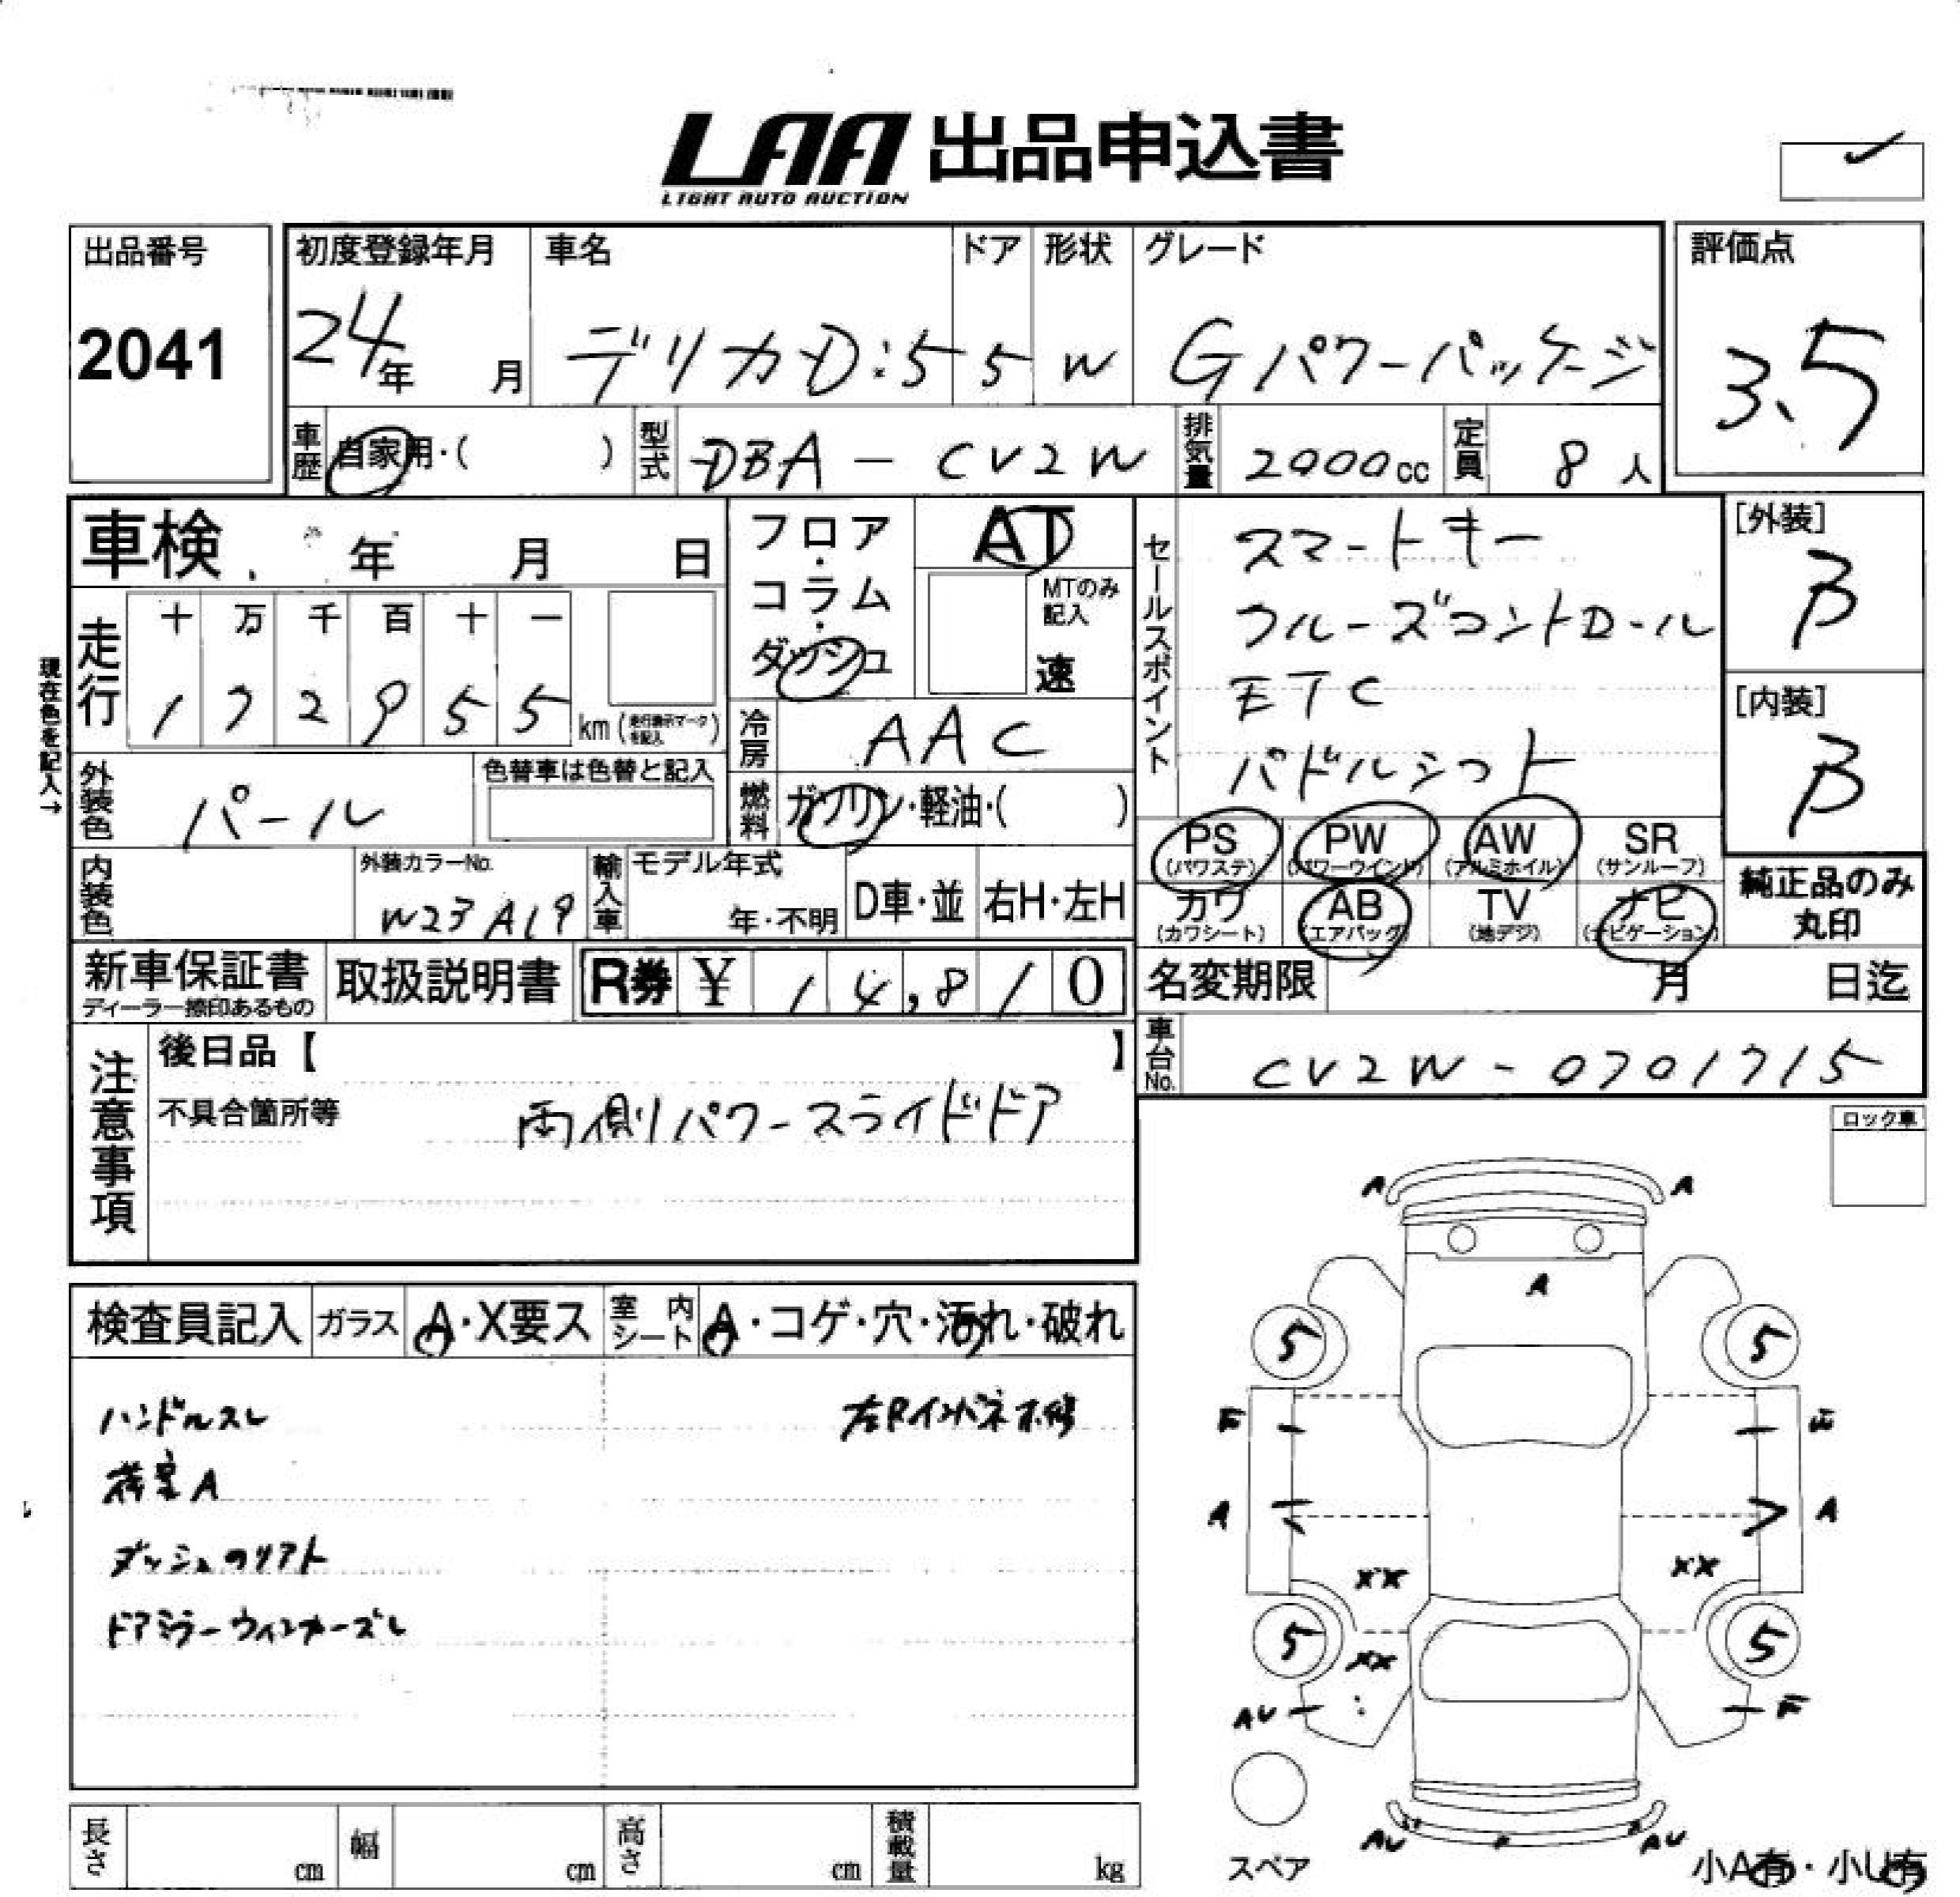 LAA 出品申込書
LIGHT AUTO AUCTION
出品番号
2041
初度登録年月
24年 月
車名
デリカD:5
ドア
5
形状
W
グレード
Gパワーパッケージ
評価点
3.5
車歴 自家用・( )
型式 DBA-CV2W
排気量 2000cc
定員 8人
車検 年 月 日
フロア・コラム・ダッシュ
AT
MTのみ記入
速
セールスポイント
スマートキー
クルーズコントロール
ETC
パドルシフト
[外装]
B
[内装]
B
現在色を記入→
走行
十 万 千 百 十 一
1 7 2 9 5 5 km (走行表示マークを記入)
冷房 AAC
外装色 パール
色替車は色替と記入
燃料 ガソリン・軽油・( )
PS (パワステ)
PW (パワーウインド)
AW (アルミホイル)
SR (サンルーフ)
カワ (カワシート)
AB (エアバッグ)
TV (地デジ)
ナビ (ナビゲーション)
純正品のみ丸印
内装色
外装カラーNo.
W23 A19
輸入車 モデル年式
年・不明
D車・並
右H・左H
新車保証書
ディーラー捺印あるもの
取扱説明書
R券 ¥ 14,810
名変期限 月 日迄
車台No. CV2W-0701715
注意事項
後日品【 】
不具合箇所等 両側パワースライドドア
ロック車
検査員記入
ガラス A・X要ス
室内シート A・コゲ・穴・汚れ・破れ
ハンドルスレ
左Rインパネ木修
荷室A
ダッシュのリアト
ドアミラーウィンカーズレ
A A
A
5 5
E E
A A
XX XX
5 5
XX
AU F
スペア
AU AU
小A有・小U有
長さ cm
幅 cm
高さ cm
積載量 kg